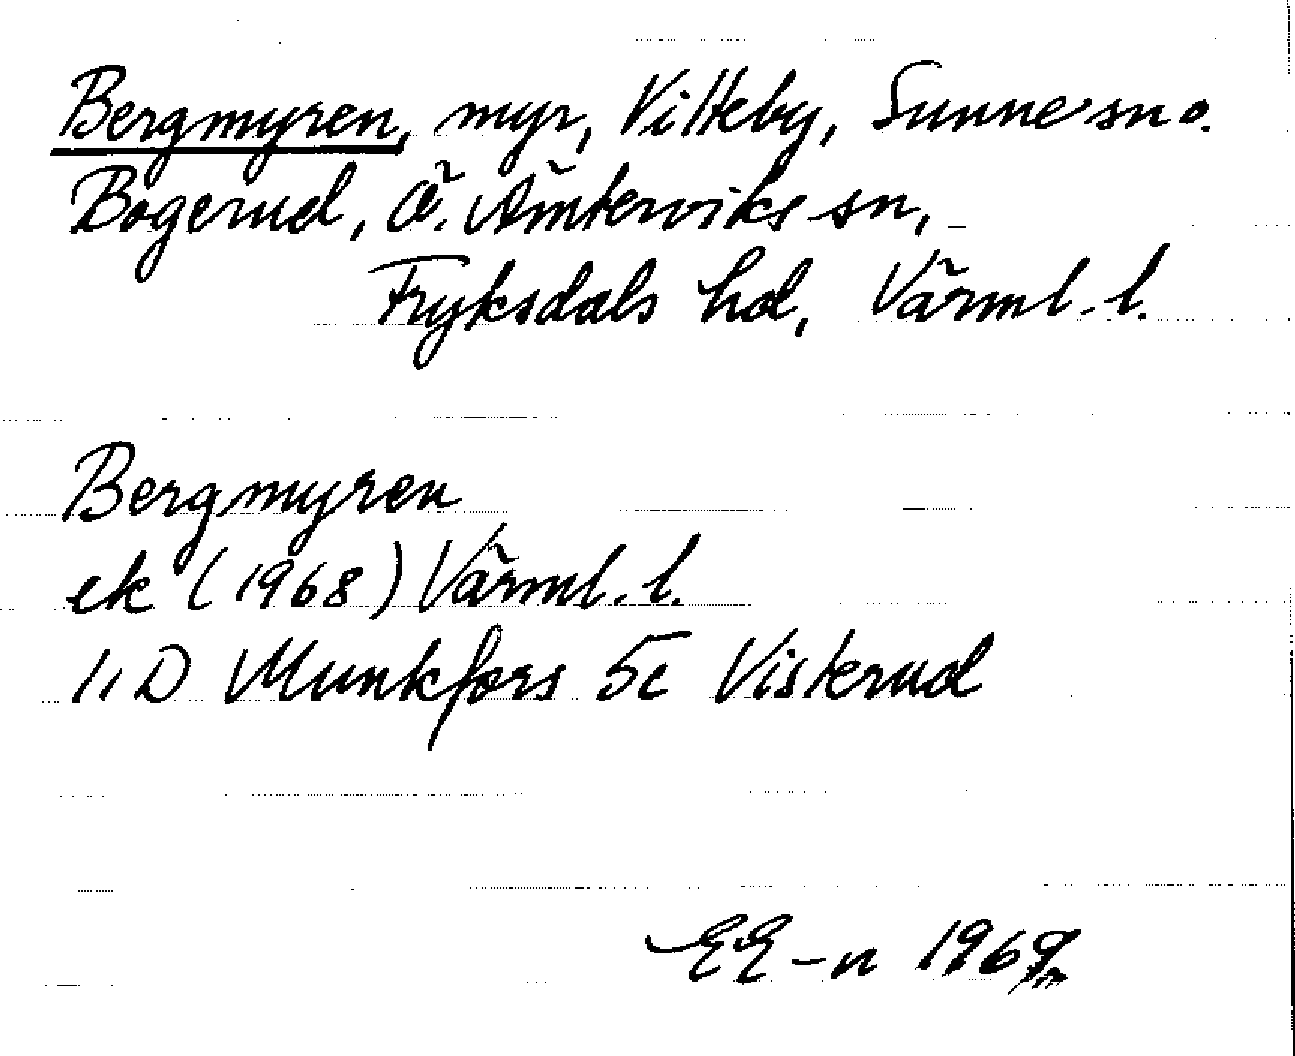 Bergmyren, myr, Vitteby, Sunne sn o.
Bogerud, Ö. Ämterviks sn,
Fryksdals hd, Värml. l.
Bergmyren
ek (1968) Värml. l.
11 D Munkfors 5c Visterud
EE-n 1969